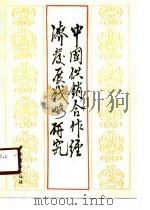 中国供销合作经
济发展战略研究